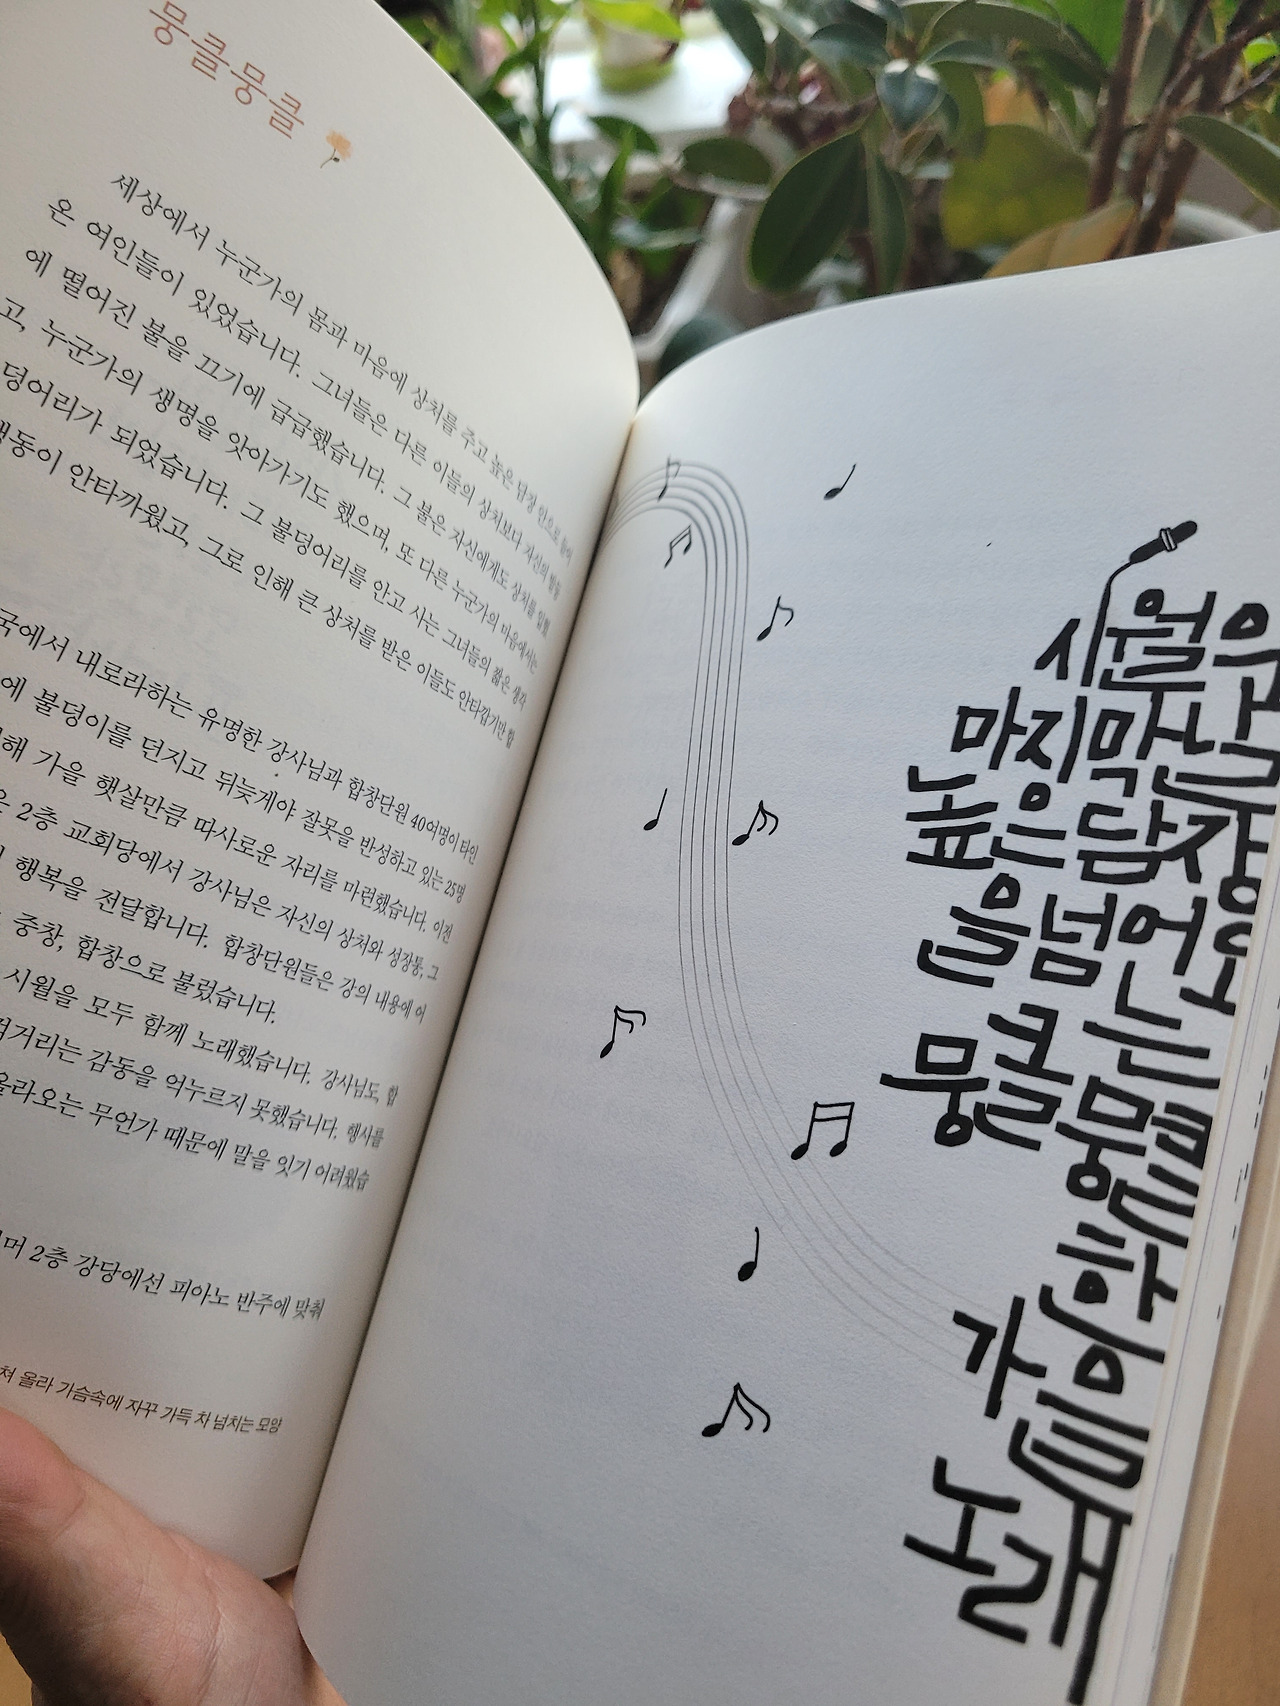 뭉클뭉클
세상에서 누군가의 몸과 마음에 상처를 주고 높은 담장 안으로 들어
온 여인들이 있었습니다. 그녀들은 다른 이들의 상처보다 자신의 발등
에 떨어진 불을 끄기에 급급했습니다. 그 불은 자신에게도 상처를 입혔
고, 누군가의 생명을 앗아가기도 했으며, 또 다른 누군가의 마음에서는
덩어리가 되었습니다. 그 불덩어리를 안고 사는 그녀들의 짧은 생각
행동이 안타까웠고, 그로 인해 큰 상처를 받은 이들도 안타깝기만 합
국에서 내로라하는 유명한 강사님과 합창단원 40여명이 타인
에 불덩이를 던지고 뒤늦게야 잘못을 반성하고 있는 25명
해 가을 햇살만큼 따사로운 자리를 마련했습니다. 이전
은 2층 교회당에서 강사님은 자신의 상처와 성장통, 그
행복을 전달합니다. 합창단원들은 강의 내용에 어
중창, 합창으로 불렀습니다.
시월을 모두 함께 노래했습니다. 강사님도, 합
컥거리는 감동을 억누르지 못했습니다. 행사를
올라오는 무언가 때문에 말을 잇기 어려웠습
너머 2층 강당에선 피아노 반주에 맞춰
쳐 올라 가슴속에 자꾸 가득 차 넘치는 모양
시월
마지막
높은 담장
을 넘어오
는
뭉클뭉클
한
가을
노래